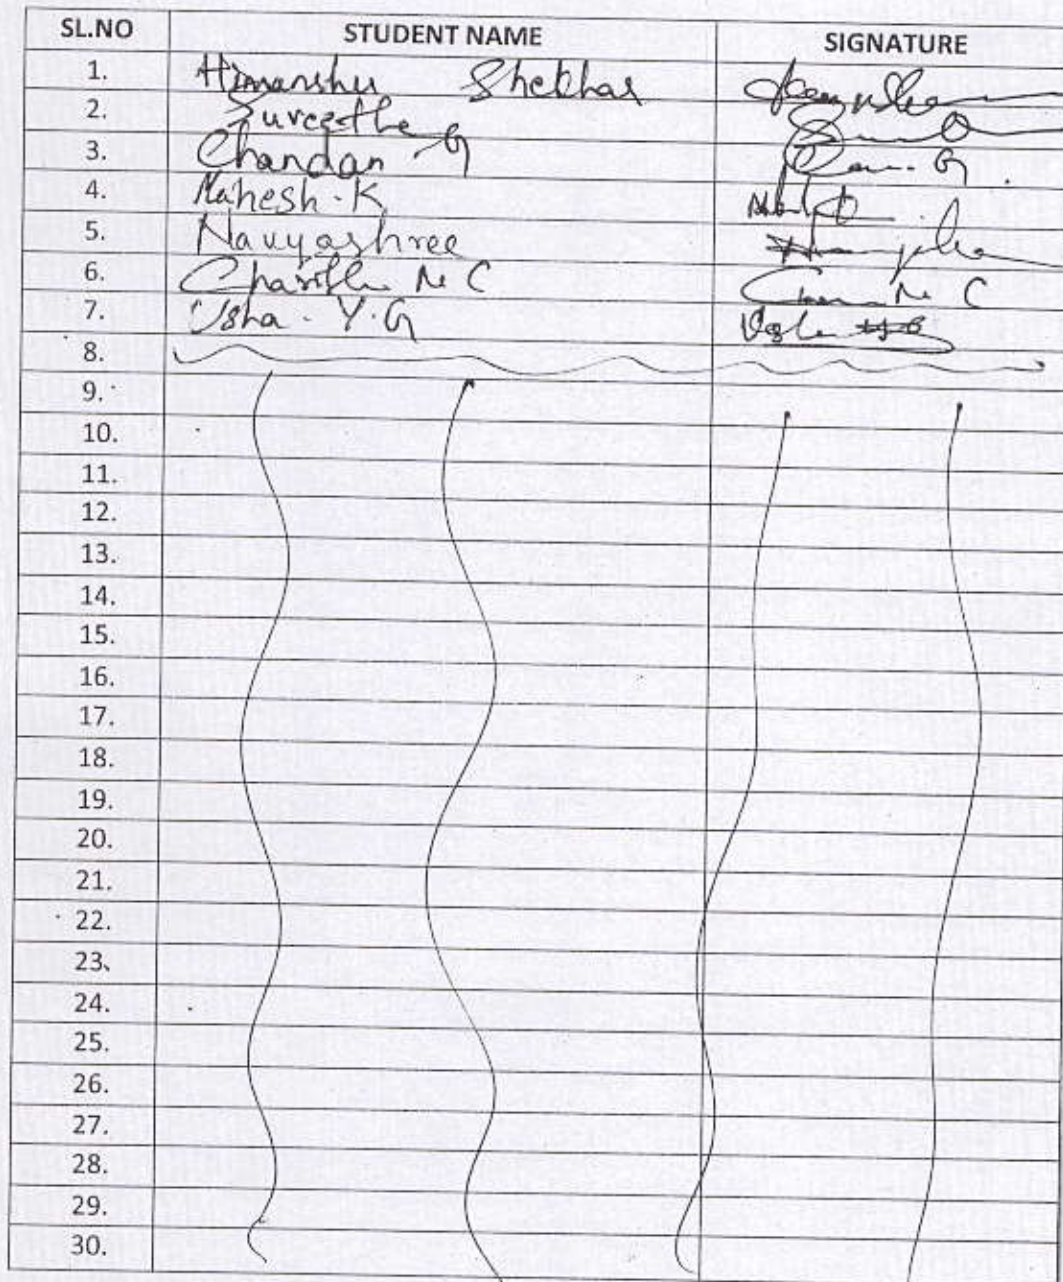 SL.NO STUDENT NAME SIGNATURE
1. Himanshu Shekhar
2.
3. Chandan G
4. Mahesh. K
5. Navyashree
6. N C
7. Usha. Y. G
8.
9.
10.
11.
12.
13.
14.
15.
16.
17.
18.
19.
20.
21.
22.
23.
24.
25.
26.
27.
28.
29.
30.